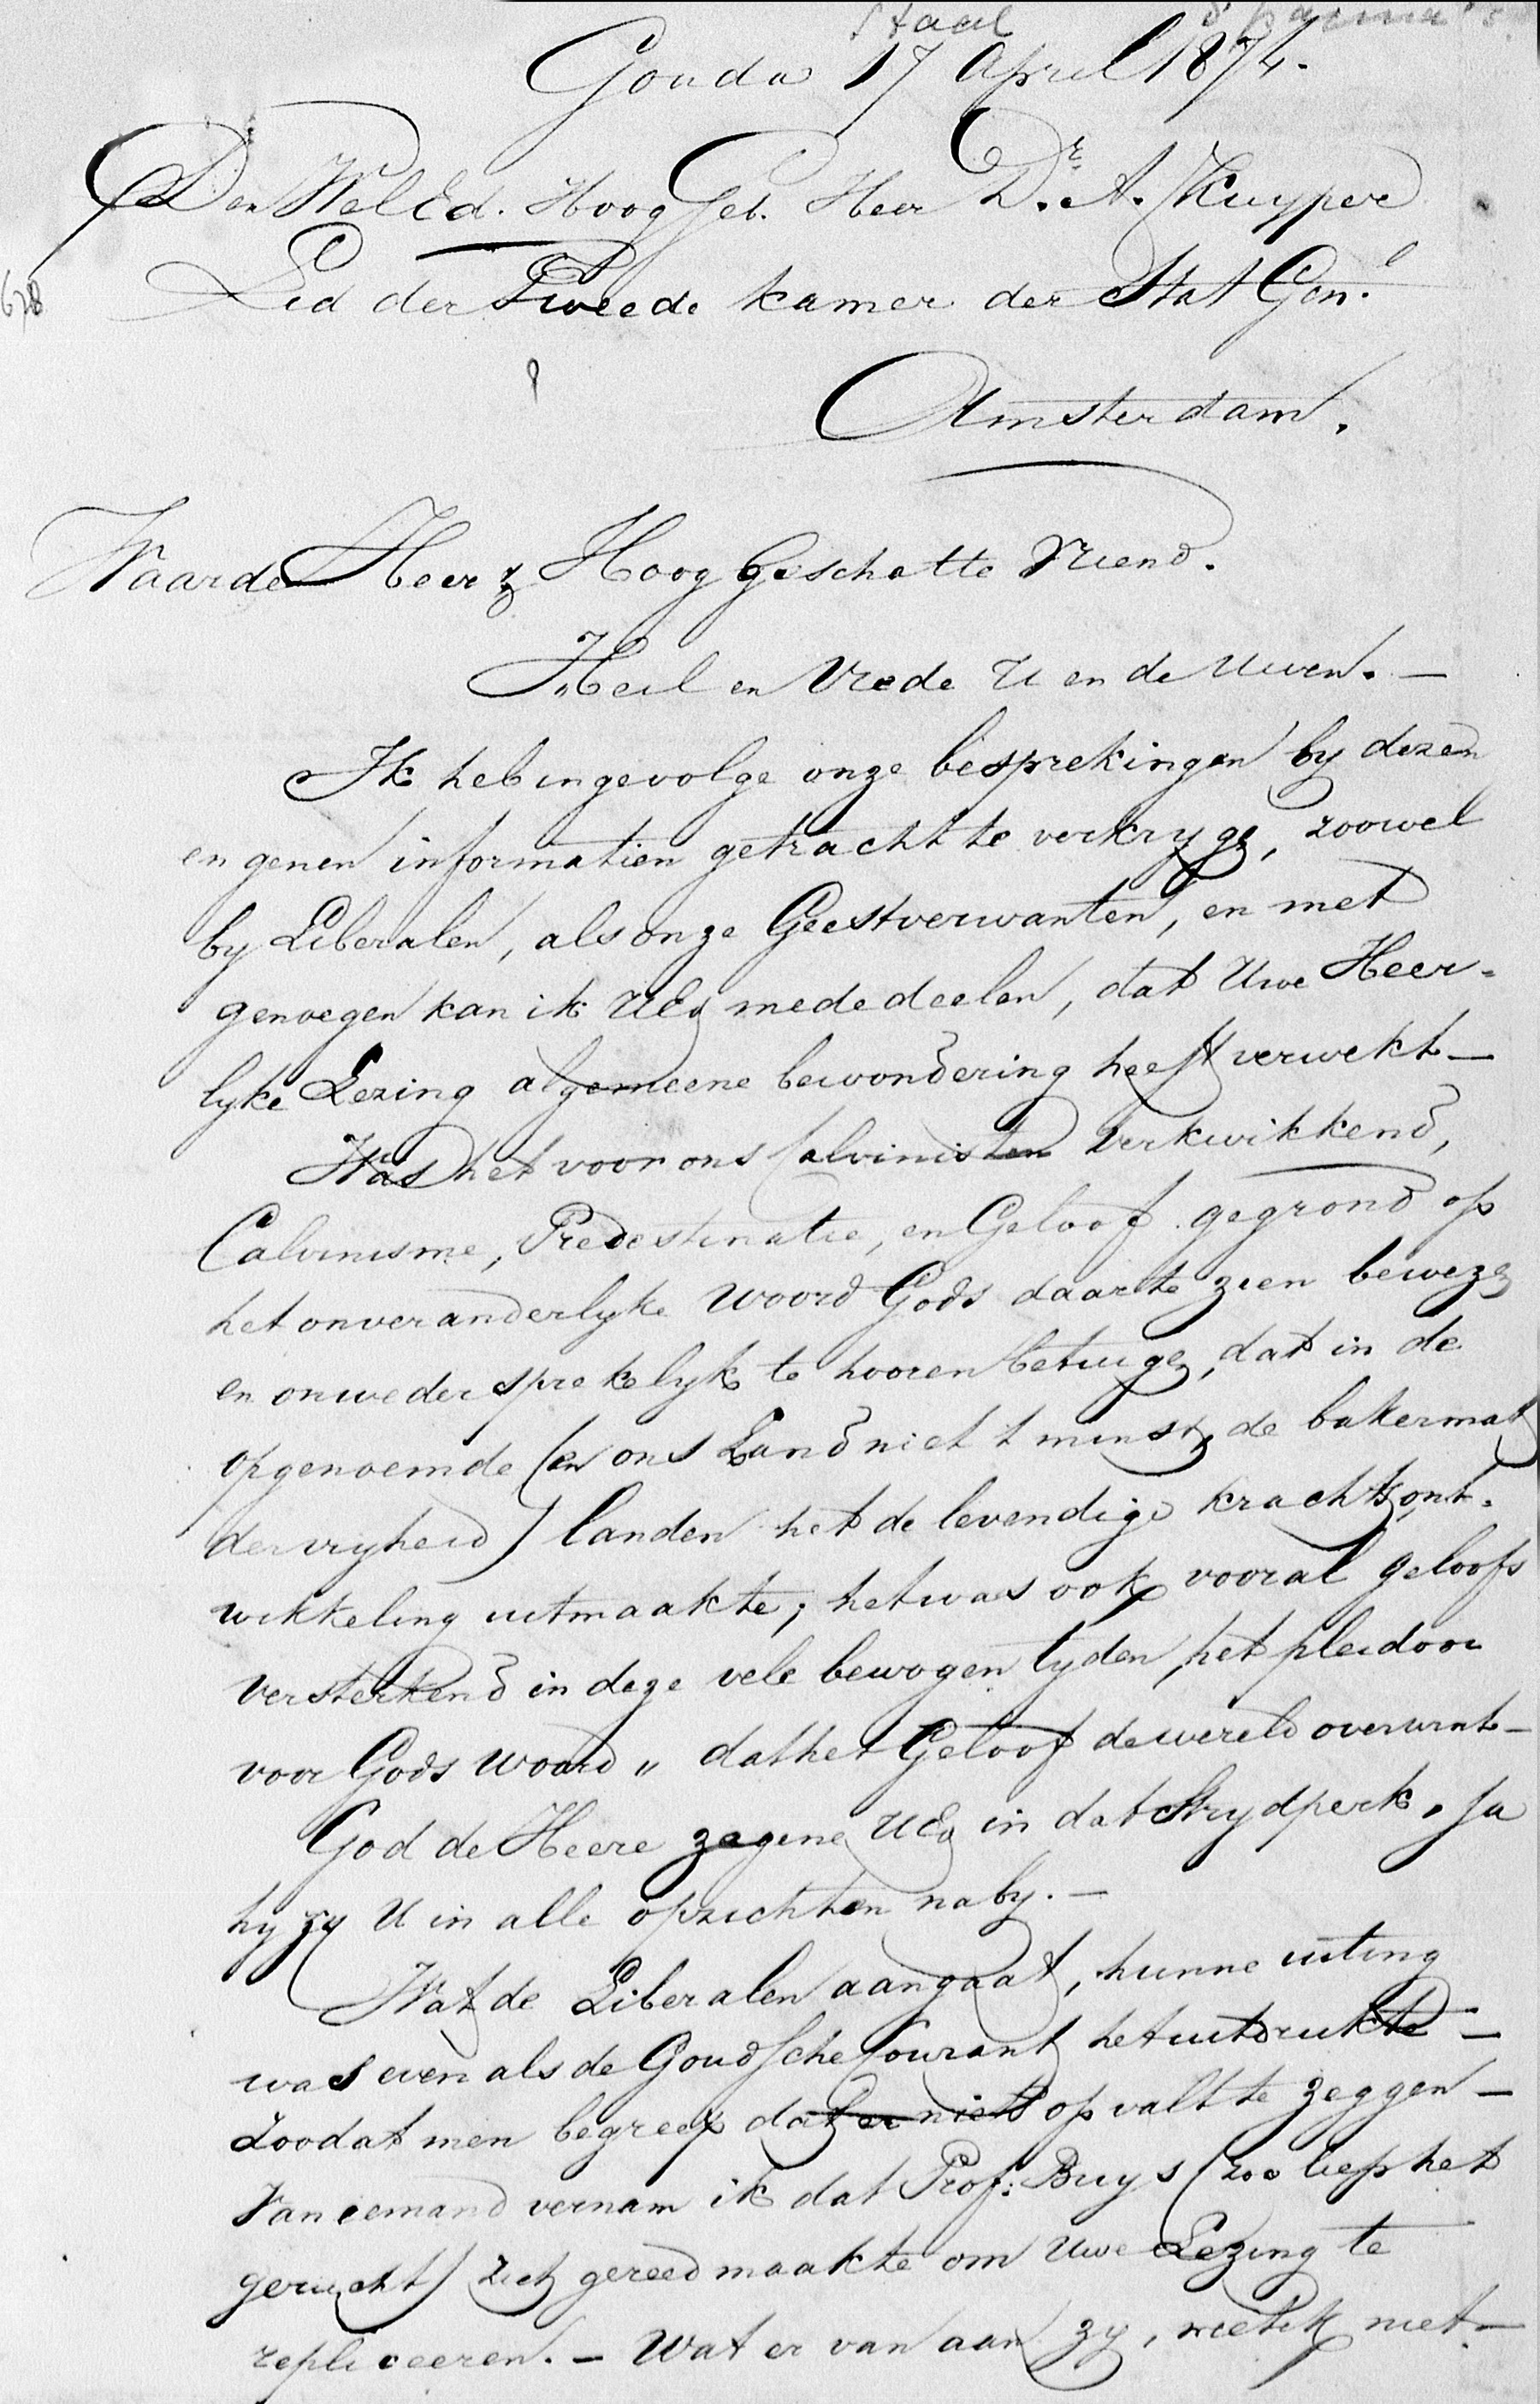 Staal
Gouda 17 April 1874.
Den WelEd. Hoog Geb. Heer Dr. A. Kuyper
Lid der Tweede kamer der Stat Genl.
628
Amsterdam.
Waarde Heer & Hoog Geschatte Vriend.
Heil en Vrede U en de Uwen. —
Ik heb ingevolge onze besprekingen by dezen
en genen informatien getracht te verkryge, zoowel
by Liberalen, als onze Geestverwanten, en met
genoegen kan ik UEd mededeelen, dat Uwe Heer-
lyke Lezing algemeene bewondering heeft verwekt —
Was het voor ons Calvinisten verkwikkend,
Calvinisme, Predestinatie, en Geloof gegrond op
het onveranderlyke woord Gods daar te zien beweze
en onwedersprekelyk te hooren betuige, dat in de
opgenoemde (en ons Land niet 't minst, de bakermat
der vryheid) landen het de levendige krachts ont-
wikkeling uitmaakte; het was ook vooral geloofs
versterkend in deze vele bewogen tyden, het pleidooi
voor Gods woord „ dat het Geloof de wereld overwint —
God de Heere zegene UEd in dat Strydperk. Ja
hy zy U in alle opzichten naby. —
Wat de Liberalen aangaat, hunne uiting
was even als de Goudsche Courant het uitdrukte —
Zoodat men begreep dat er niets op valt te zeggen —
Van iemand vernam ik dat Prof: Buys (zoo liep het
gerucht) zich gereed maakte om Uwe Lezing te
repliceeren. — Wat er van aan zy, weet ik niet —